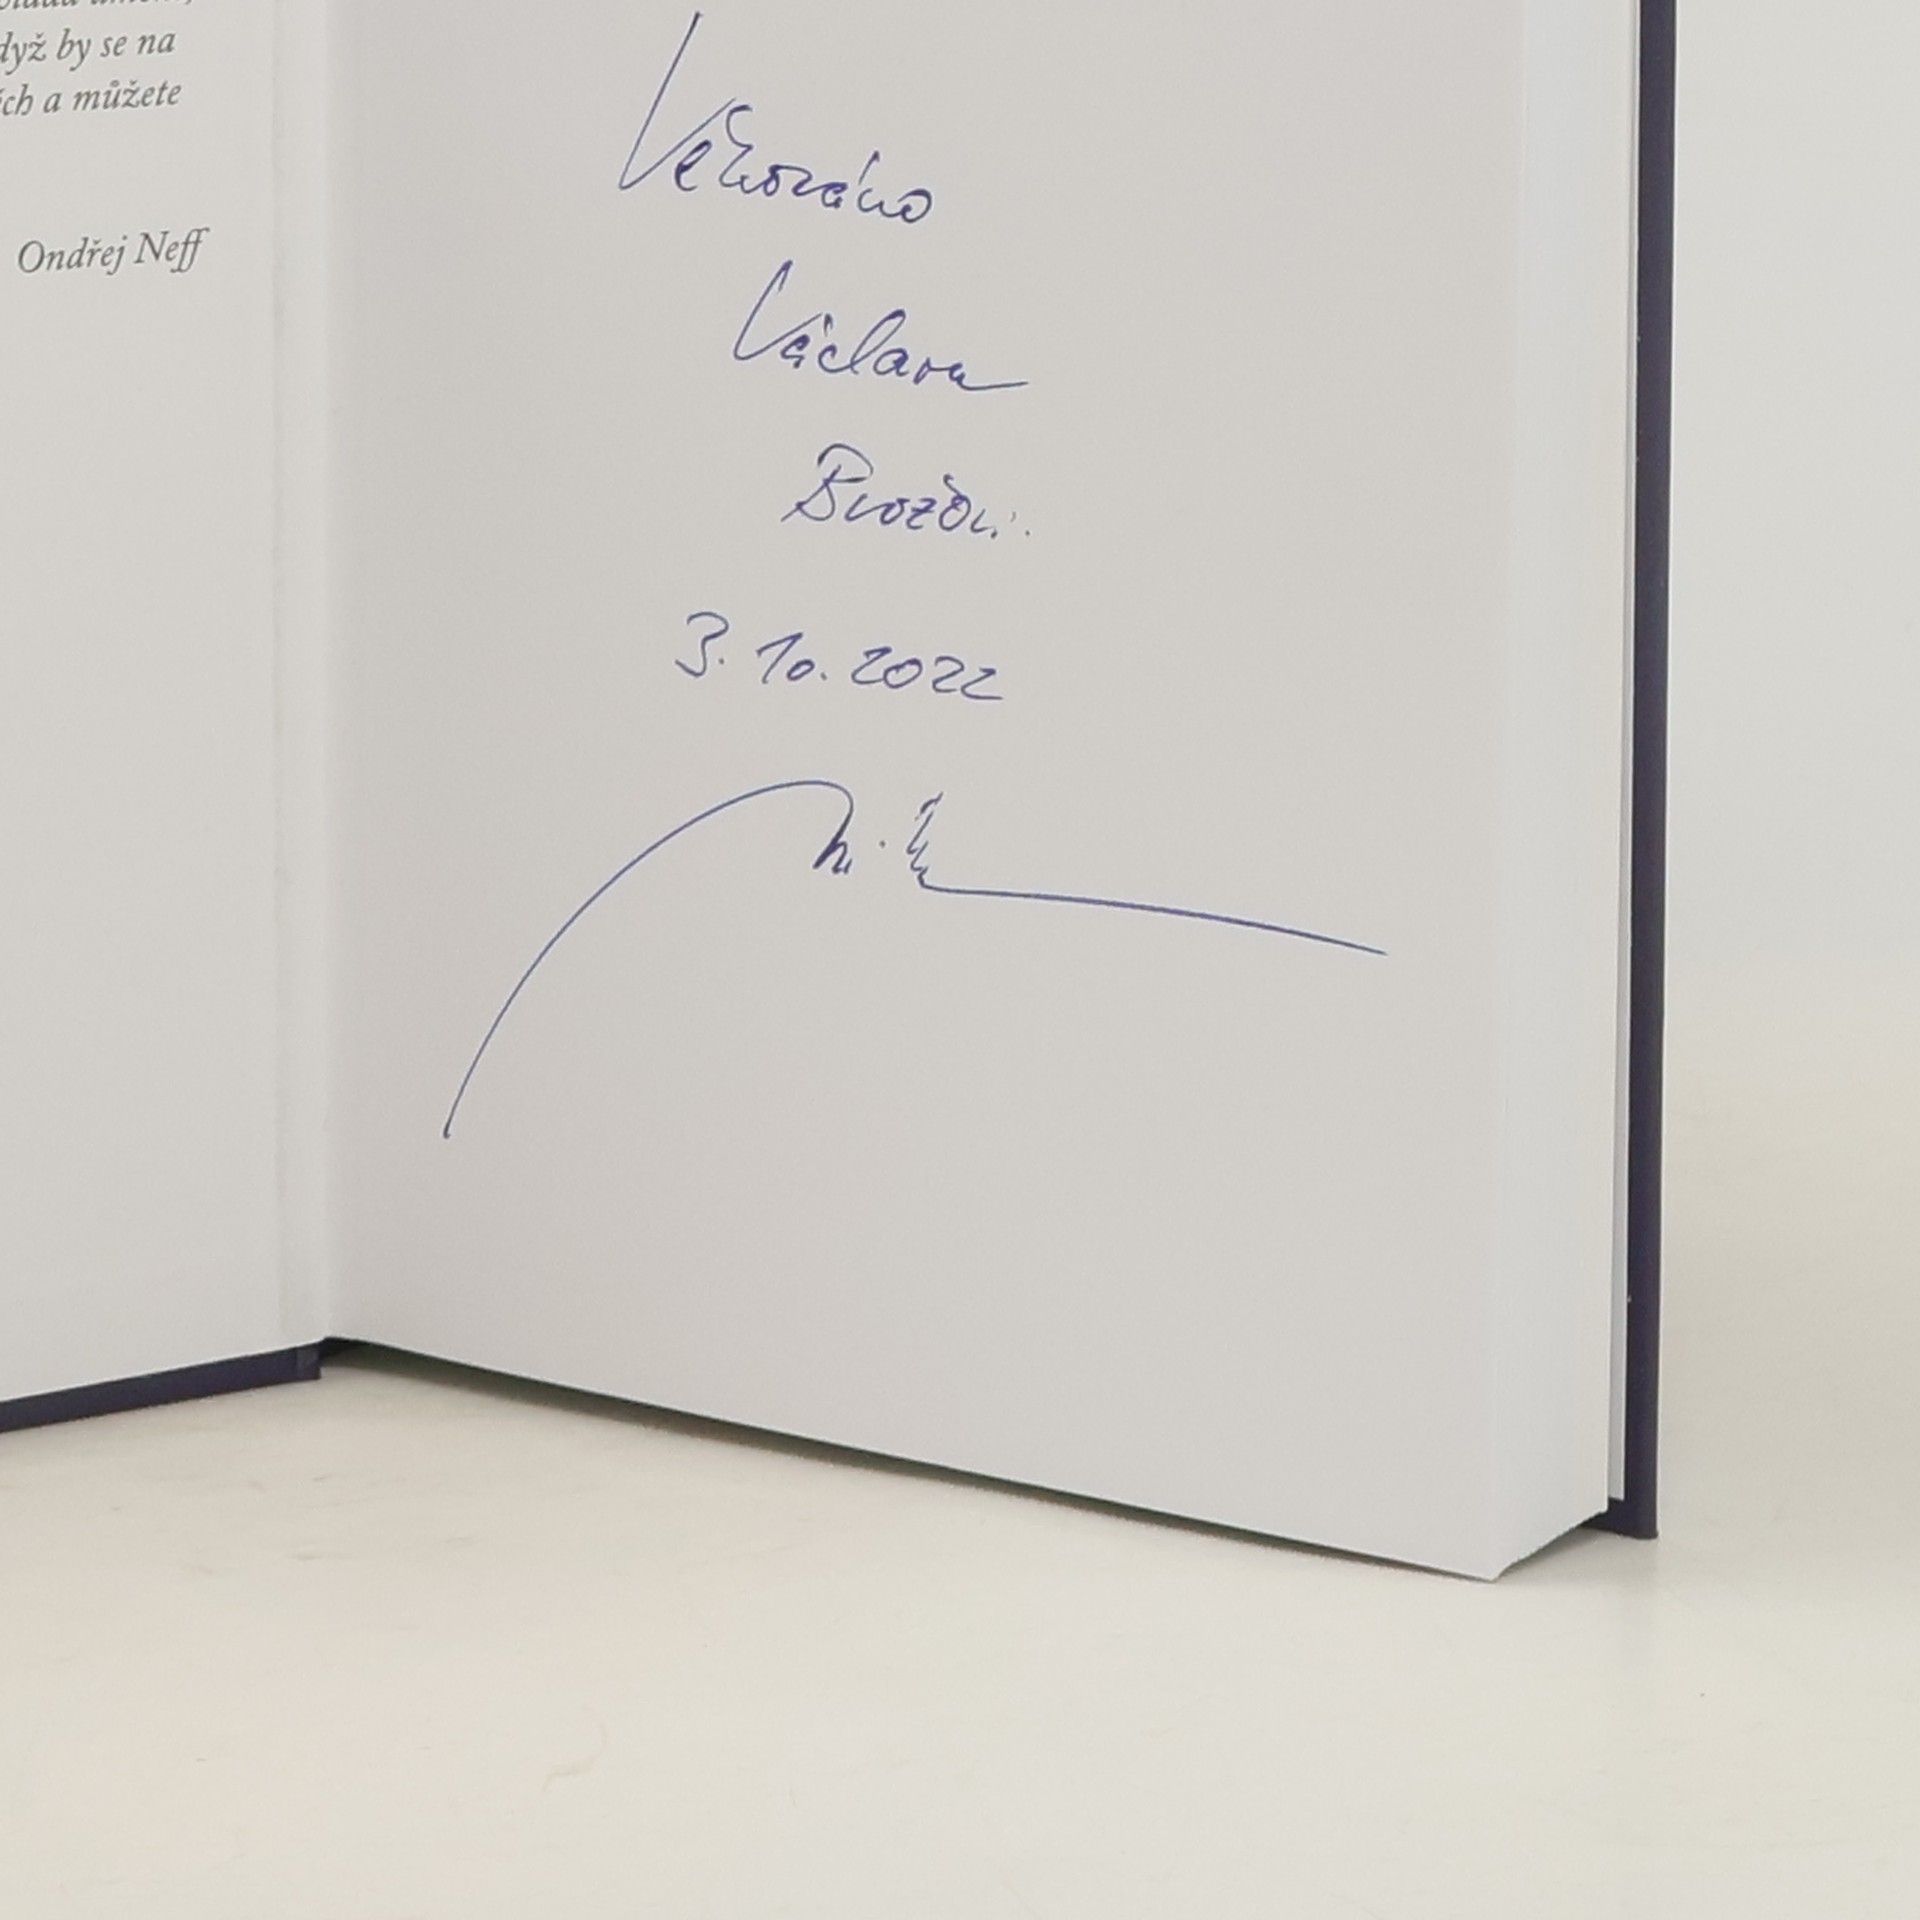 dyž by se na
ch a můžete
Ondřej Neff
Věnováno
Václavu
3. 10. 2022